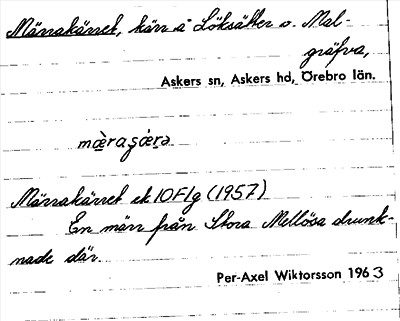 Märrakärret, kärr å Löksätter o. Mal-
gräfva,
Askers sn, Askers hd, Örebro län.
Märrakärret ek 10F1g (1957)
En märr från Stora Mellösa drunk-
nade där.
Per-Axel Wiktorsson 1963